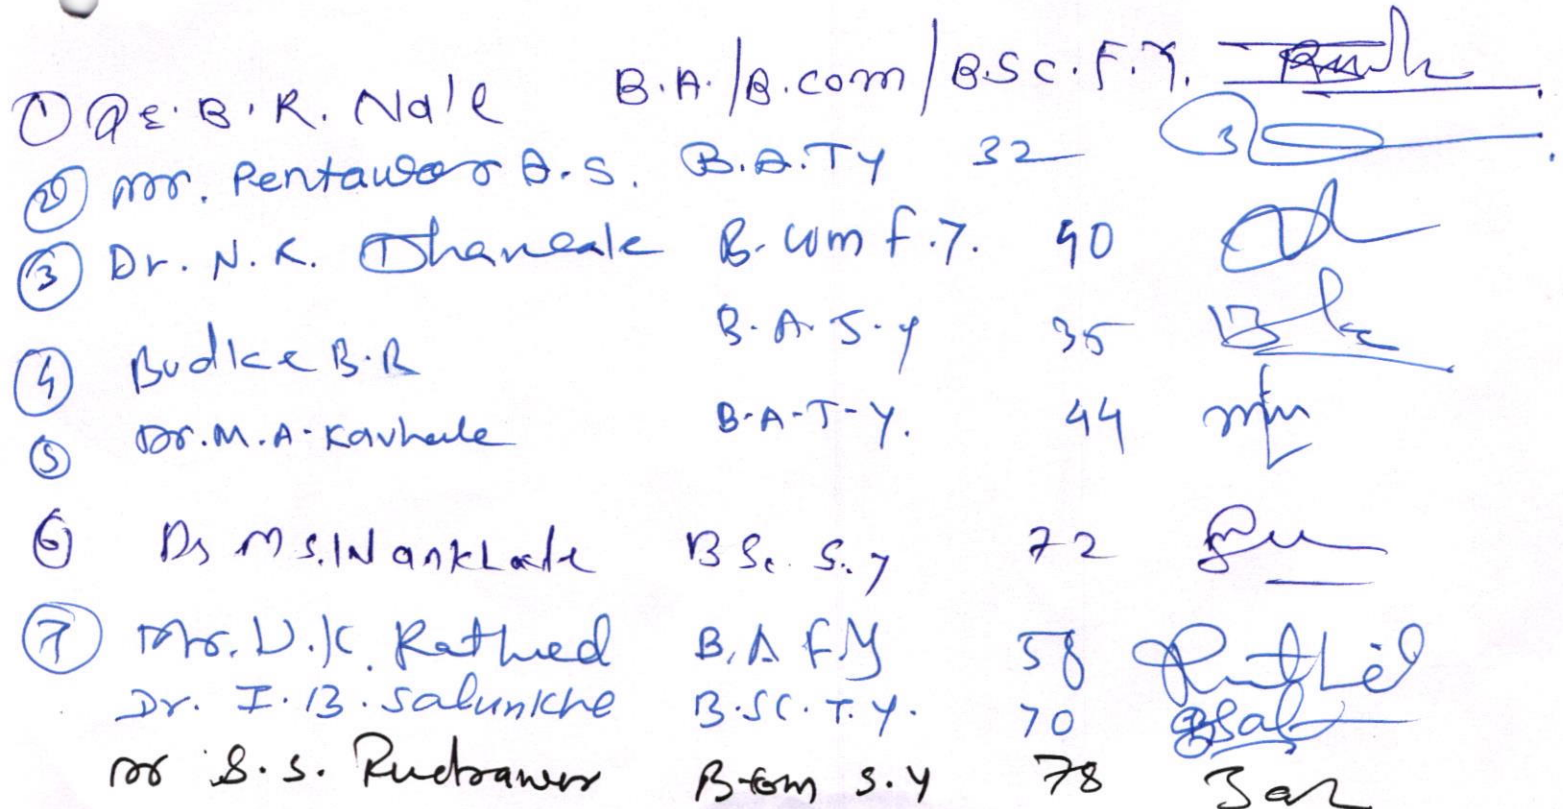 ① B.R. Nale B.A./B.com/B.Sc.F.Y.
② Mr. Pentawar A.S. B.A.TY 32
③ Dr. N.K. Dhaneale B.com F.Y. 90
④ Budke B.R B.A.S.y 35
⑤ Dr. M.A. Kavhale B-A-T-Y. 44
⑥ Dr M S. Wankhade BSc. S.y 72
⑦ Mr. D.K. Rathod B.A F.y 58 Rathod
Dr. I.B. Salunkhe B.SC.T.Y. 70
Mr S.S. Rudrawar B.com S.y 78